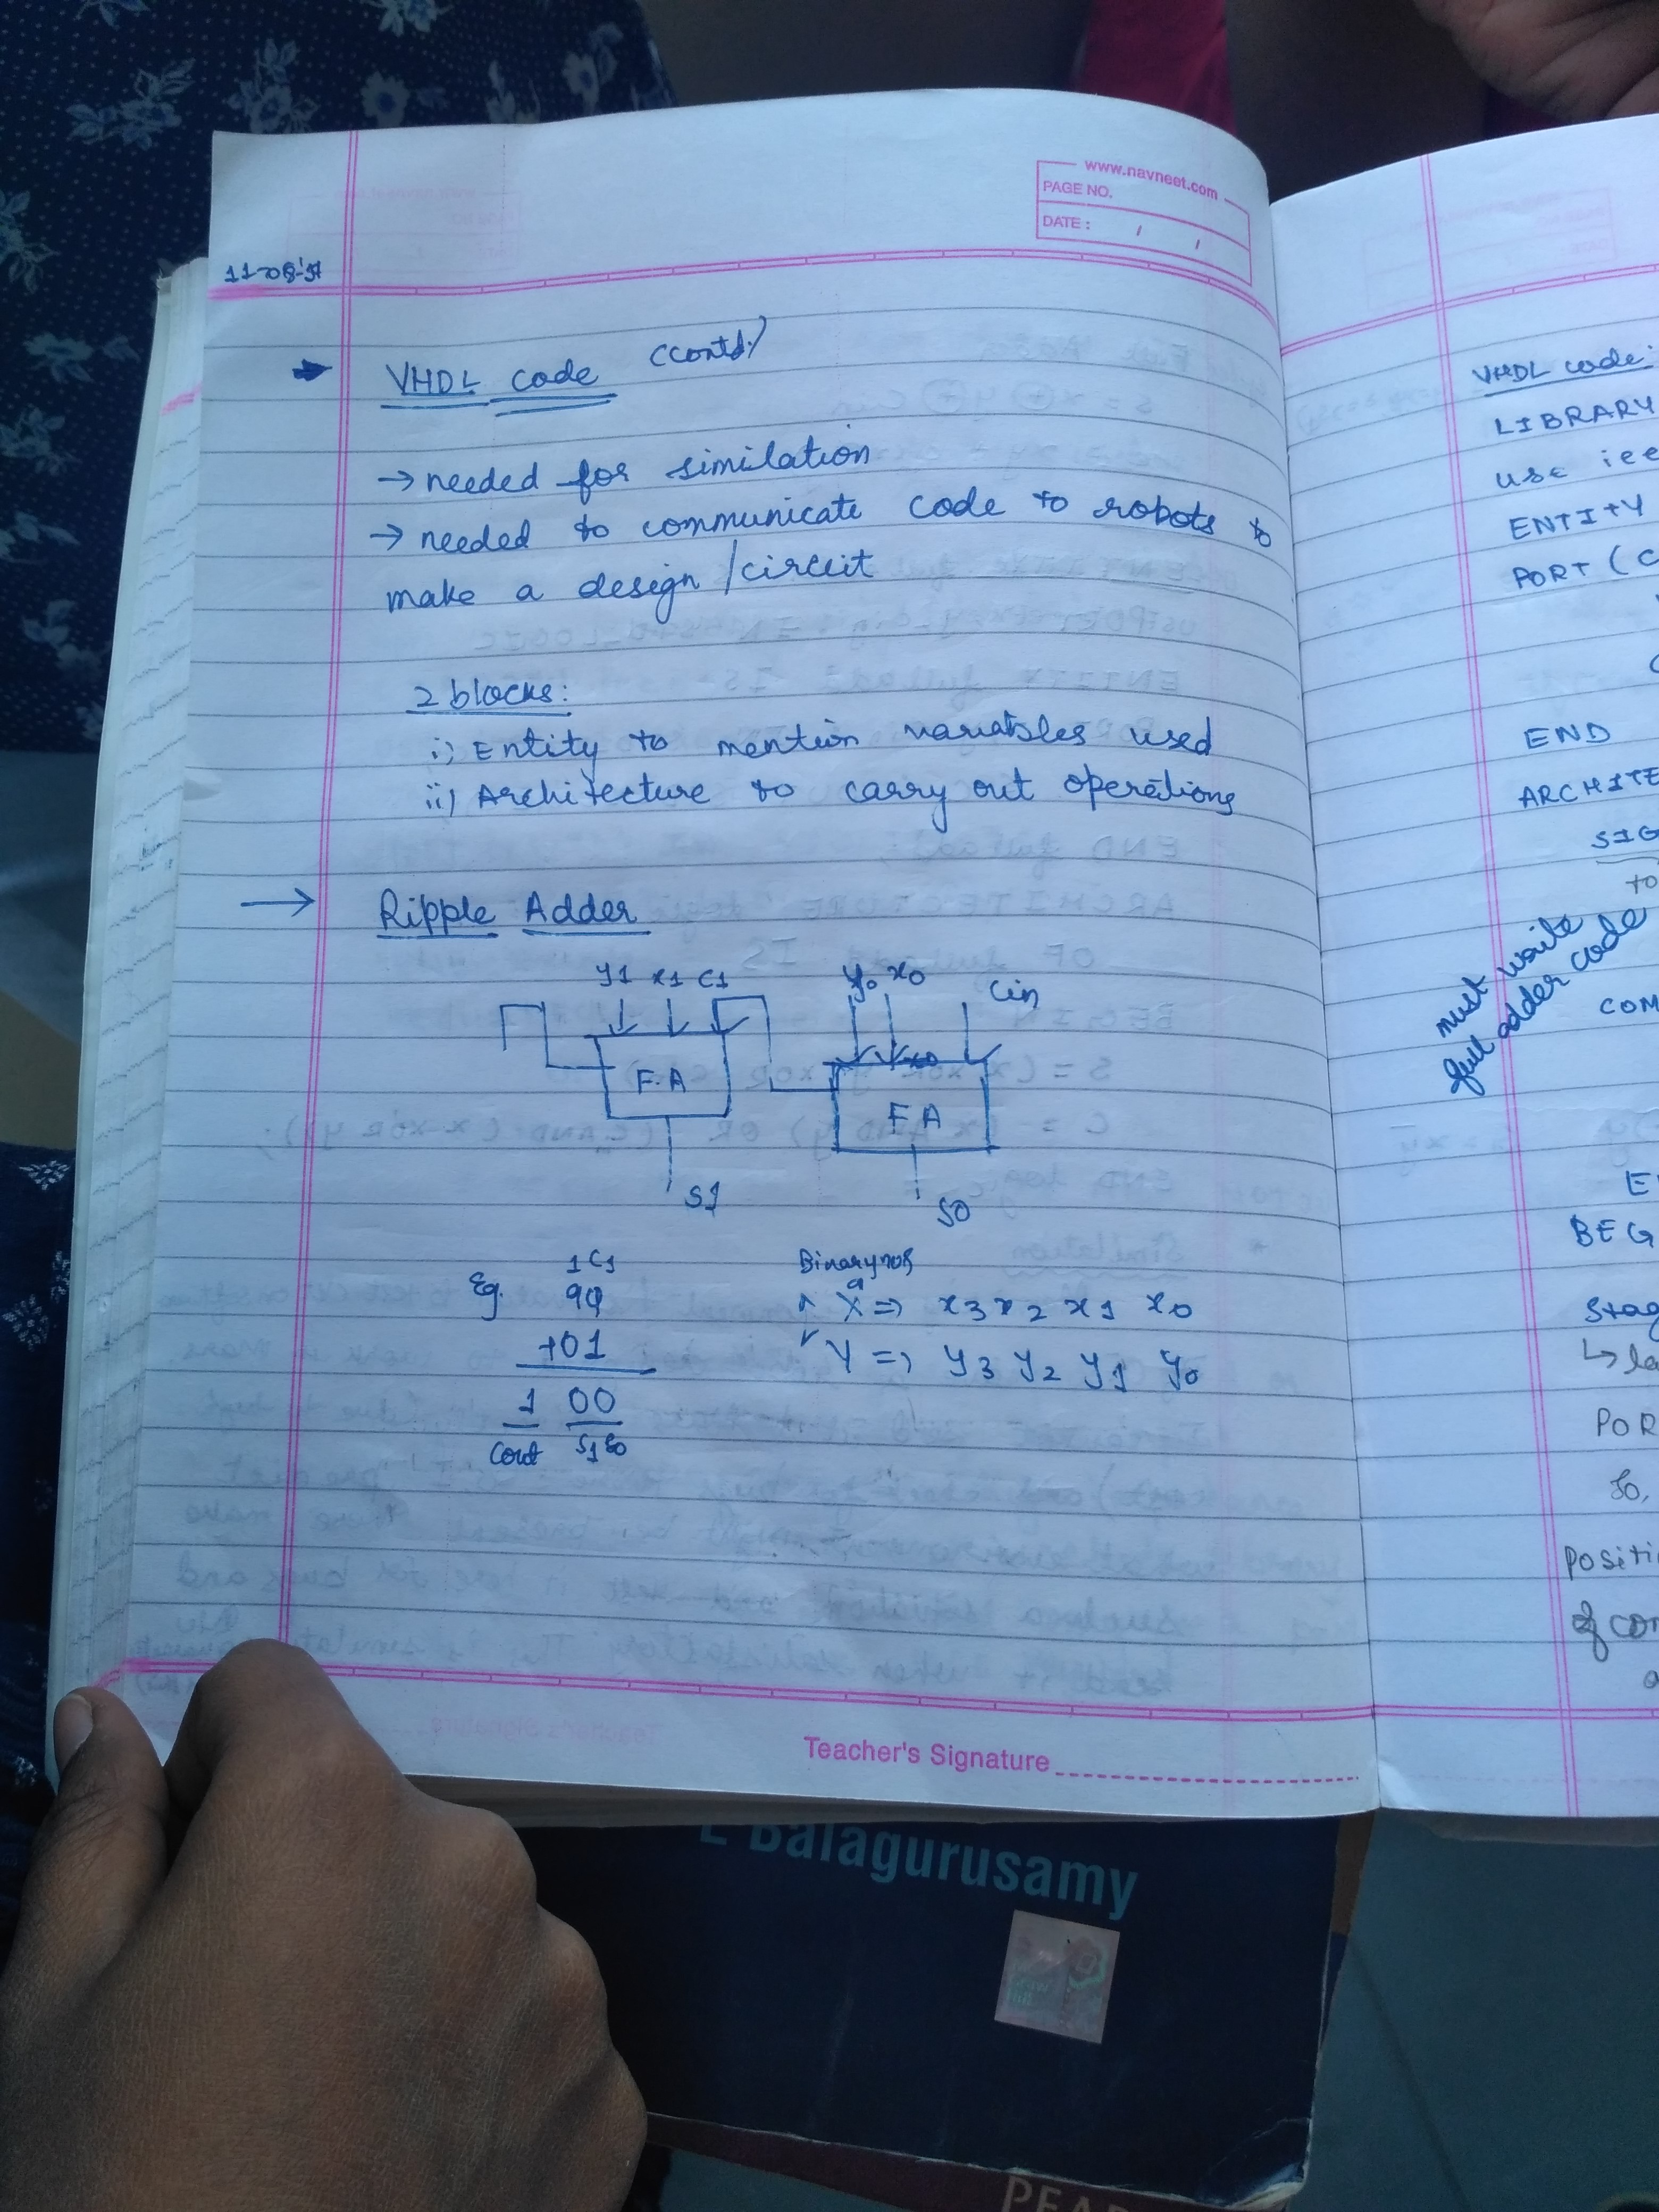 www.navneet.com
PAGE NO.
DATE : / /
VHDL code (contd)
→ needed for similation
→ needed to communicate code to robots to
make a design / circuit
2 blocks:
i) Entity to mention variables used
ii) Architecture to carry out operations
→ Ripple Adder
y1 x1 C1 y0 x0 Cin
F.A
F A
S1
S0
1 C1
Eg. 99
+01
1 00
Cout S1 S0
Binary nos
X => x3 x2 x1 x0
Y => y3 y2 y1 y0
Teacher's Signature
VHDL code:
LIBRARY
use iee
ENTITY
PORT (C
END
ARCHITE
SIG
to
must write
full adder code
COM
E
BEG
Stag
↳ la
POR
So,
Positi
of con
E Balagurusamy
PEA